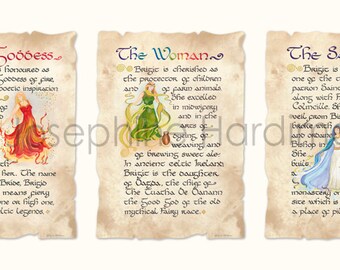 Goddess
honoured as
Goddess of Fire,
poetic inspiration
her. The name
Bride, Brigid
means fiery
one or high one,
Celtic legends.
The Woman
Brigit is cherished as
the protector of children
and of farm animals
She excelled
in midwifery
and in the
arts of
dyeing
weaving and
of brewing sweet ale.
In ancient Celtic Ireland
Brigit is the daughter
of Dagda, the chief of
The Tuatha De Danann
the Good God of the old
mythical fairy race.
The Sa
Brigit is
patron Saint
along with P
Columcille. S
well from Brig
spoke with
and ordained
along
Bishop
monastery o
site which is
a place of pil